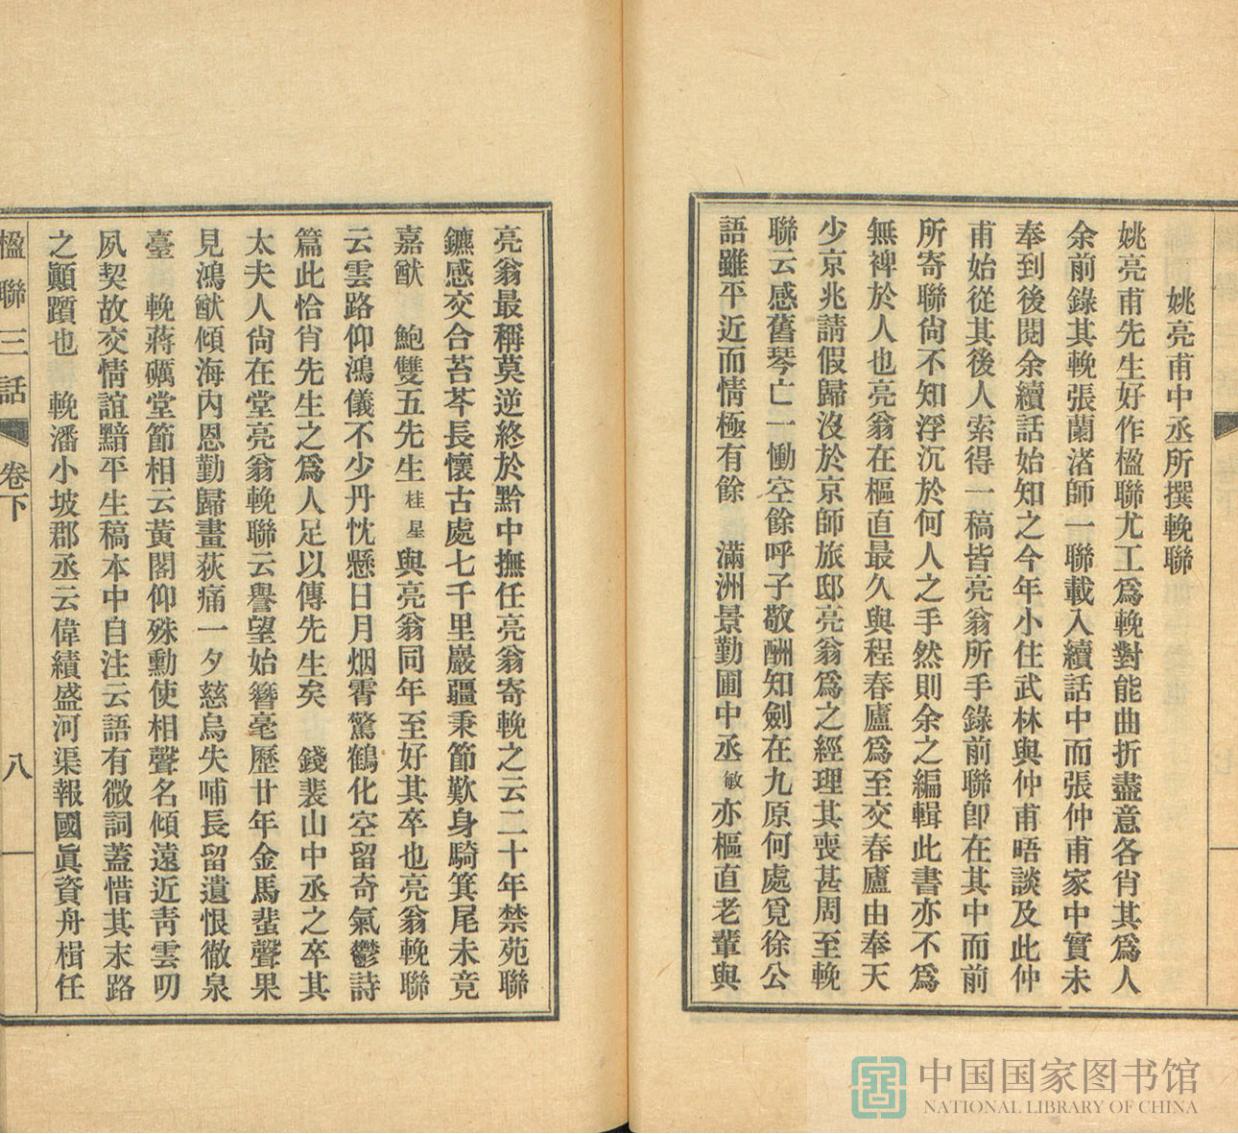 姚亮甫中丞所撰輓聯
姚亮甫先生好作楹聯尤工爲輓對能曲折盡意各肖其爲人
余前錄其輓張蘭渚師一聯載入續話中而張仲甫家中實未
奉到後閱余續話始知之今年小住武林與仲甫晤談及此仲
甫始從其後人索得一稿皆亮翁所手錄前聯卽在其中而前
所寄聯尙不知浮沉於何人之手然則余之編輯此書亦不爲
無裨於人也亮翁在樞直最久與程春廬爲至交春廬由奉天
少京兆請假歸沒於京師旅邸亮翁爲之經理其喪甚周至輓
聯云感舊琴亡一慟空餘呼子敬酬知劍在九原何處覓徐公
語雖平近而情極有餘 滿洲景勤圃中丞敏亦樞直老輩與
亮翁最稱莫逆終於黔中撫任亮翁寄輓之云二十年禁苑聯
鑣感交合苔芩長懷古處七千里巖疆秉節歎身騎箕尾未竟
嘉猷 鮑雙五先生桂星與亮翁同年至好其卒也亮翁輓聯
云雲路仰鴻儀不少丹忱懸日月烟霄驚鶴化空留奇氣鬱詩
篇此恰肖先生之爲人足以傳先生矣 錢裴山中丞之卒其
太夫人尙在堂亮翁輓聯云譽望始簪毫歷廿年金馬蜚聲果
見鴻猷傾海內恩勤歸畫荻痛一夕慈烏失哺長留遺恨徹泉
臺 輓蔣礪堂節相云黃閣仰殊勳使相聲名傾遠近靑雲叨
夙契故交情誼黯平生稿本中自注云語有微詞蓋惜其末路
之顚躓也 輓潘小坡郡丞云偉績盛河渠報國眞資舟楫任
楹聯三話 卷下 八
中国国家图书馆
NATIONAL LIBRARY OF CHINA